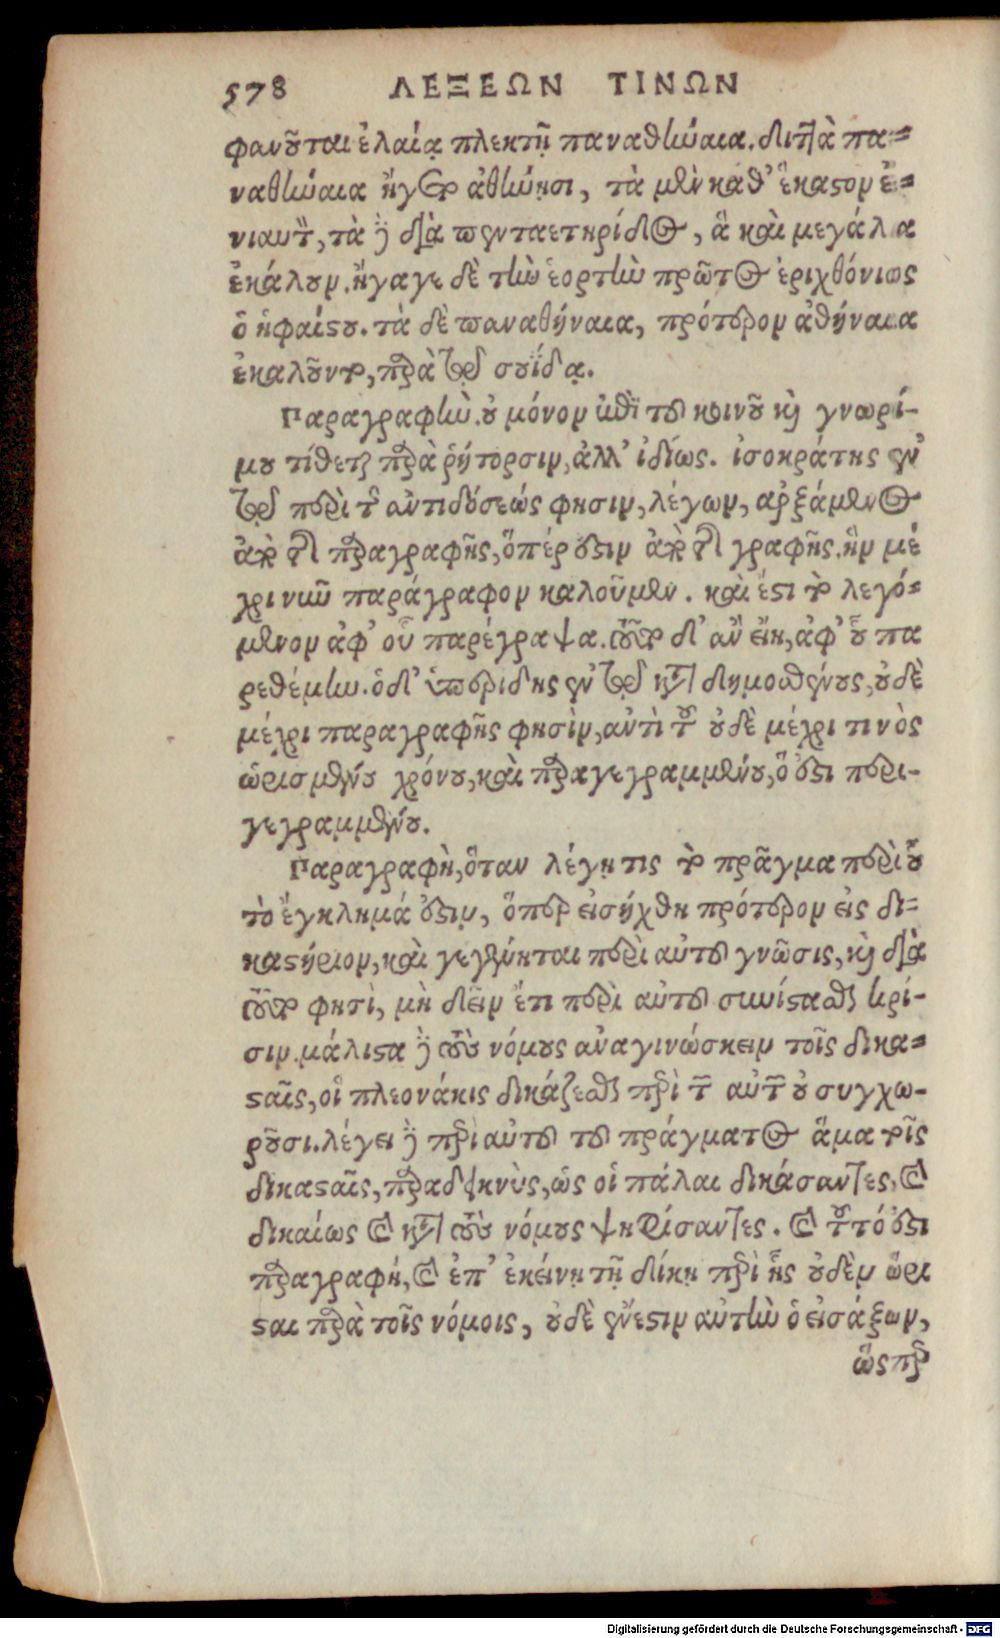 578 ΛΕΞΕΩΝ ΤΙΝΩΝ
φανοῦται ἐλαίᾳ πλεκτῇ παναθήναια. διττὰ πα-
ναθήναια ἤγετο ἀθήνησι, τὰ μὲν καθ' ἕκαστον ἐ-
νιαυτὸν, τὰ δὲ διὰ πενταετηρίδος, ἃ καὶ μεγάλα
ἐκάλουν. ἤγαγε δὲ τὴν ἑορτὴν πρῶτος ἐριχθόνιος
ὁ ἡφαίστου. τὰ δὲ παναθήναια, πρότερον ἀθήναια
ἐκαλοῦντο, παρὰ τῷ σουΐδᾳ.
Παραγραφὴν. οὐ μόνον ἐπὶ τοῦ κοινοῦ καὶ γνωρί-
μου τίθεται παρὰ ῥήτορσιν, ἀλλ' ἰδίως. ἰσοκράτης ἐν
τῷ περὶ τῆς ἀντιδόσεώς φησιν, λέγων, ἀρξάμενος
ἀπὸ τῆς παραγραφῆς, ὅπέρ ἐστιν ἀπὸ τῆς γραφῆς. ἣν μέ
χρι νῦν παράγραφον καλοῦμεν. καὶ ἔστι τὸ λεγό-
μενον ἀφ' οὗ παρέγραψα. τοῦτο δ' ἂν εἴη, ἀφ' οὗ πα
ρεθέμην. ὁ δ' ὑπερίδης ἐν τῷ κατὰ δημοσθένους, οὐδὲ
μέχρι παραγραφῆς φησὶν, ἀντὶ τοῦ οὐδὲ μέχρι τινὸς
ὡρισμένου χρόνου, καὶ παραγεγραμμένου, ὅ ἐστι περι-
γεγραμμένου.
Παραγραφὴ, ὅταν λέγῃ τις τὸ πρᾶγμα περὶ οὗ
τὸ ἔγκλημά ἐστιν, ὅπερ εἰσήχθη πρότερον εἰς δι-
καστήριον, καὶ γεγένηται περὶ αὐτοῦ γνῶσις, καὶ διὰ
τοῦτο φησὶ, μὴ δεῖν ἔτι περὶ αὐτοῦ συνίστασθαι κρί-
σιν. μάλιστα δὲ τοὺς νόμους ἀναγινώσκειν τοῖς δικα-
σταῖς, οἳ πλεονάκις δικάζεσθαι περὶ τῶν αὐτῶν οὐ συγχω-
ροῦσι. λέγει δὲ περὶ αὐτοῦ τοῦ πράγματος ἅμα τοῖς
δικασταῖς, παραδεικνὺς, ὡς οἱ πάλαι δικάσαντες, καὶ
δικαίως καὶ κατὰ τοὺς νόμους ψηφίσαντες. καὶ τοῦτό ἐστι
παραγραφή, καὶ ἐπ' ἐκείνῃ τῇ δίκῃ περὶ ἧς οὐδὲν ὥρι
σται παρὰ τοῖς νόμοις, οὐδὲ ἔνεστιν αὐτὴν ὁ εἰσάξων,
ὥσπερ
Digitalisierung gefördert durch die Deutsche Forschungsgemeinschaft - DFG